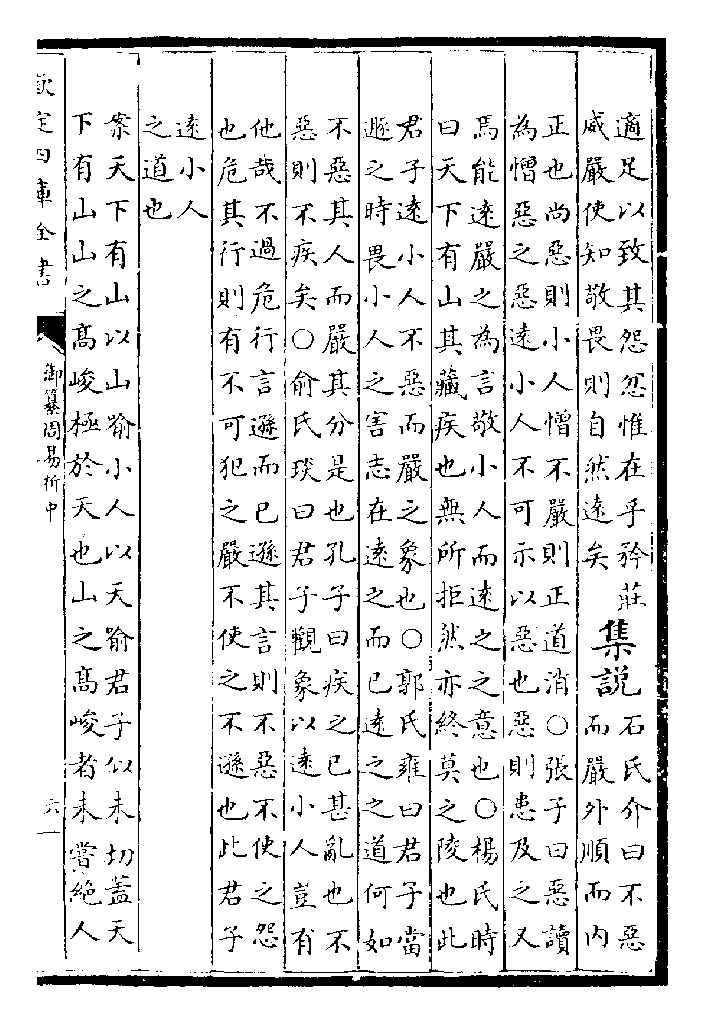 適足以致其怨忿惟在乎矜莊
威嚴使知敬畏則自然遠矣
集説
石氏介曰不惡
而嚴外順而内
正也尚惡則小人憎不嚴則正道消○張子曰惡讀
為憎惡之惡遠小人不可示以惡也惡則患及之又
焉能遠嚴之為言敬小人而遠之之意也○楊氏時
曰天下有山其藏疾也無所拒然亦終莫之陵也此
君子遠小人不惡而嚴之象也○郭氏雍曰君子當
遯之時畏小人之害志在遠之而已遠之之道何如
不惡其人而嚴其分是也孔子曰疾之已甚亂也不
惡則不疾矣○俞氏琰曰君子觀象以遠小人豈有
他哉不過危行言遜而已遜其言則不惡不使之怨
也危其行則有不可犯之嚴不使之不遜也此君子
遠小人
之道也
案天下有山以山喻小人以天喻君子似未切蓋天
下有山山之髙峻極於天也山之髙峻者未嘗絶人
欽定四庫全書
御纂周易折中
六一